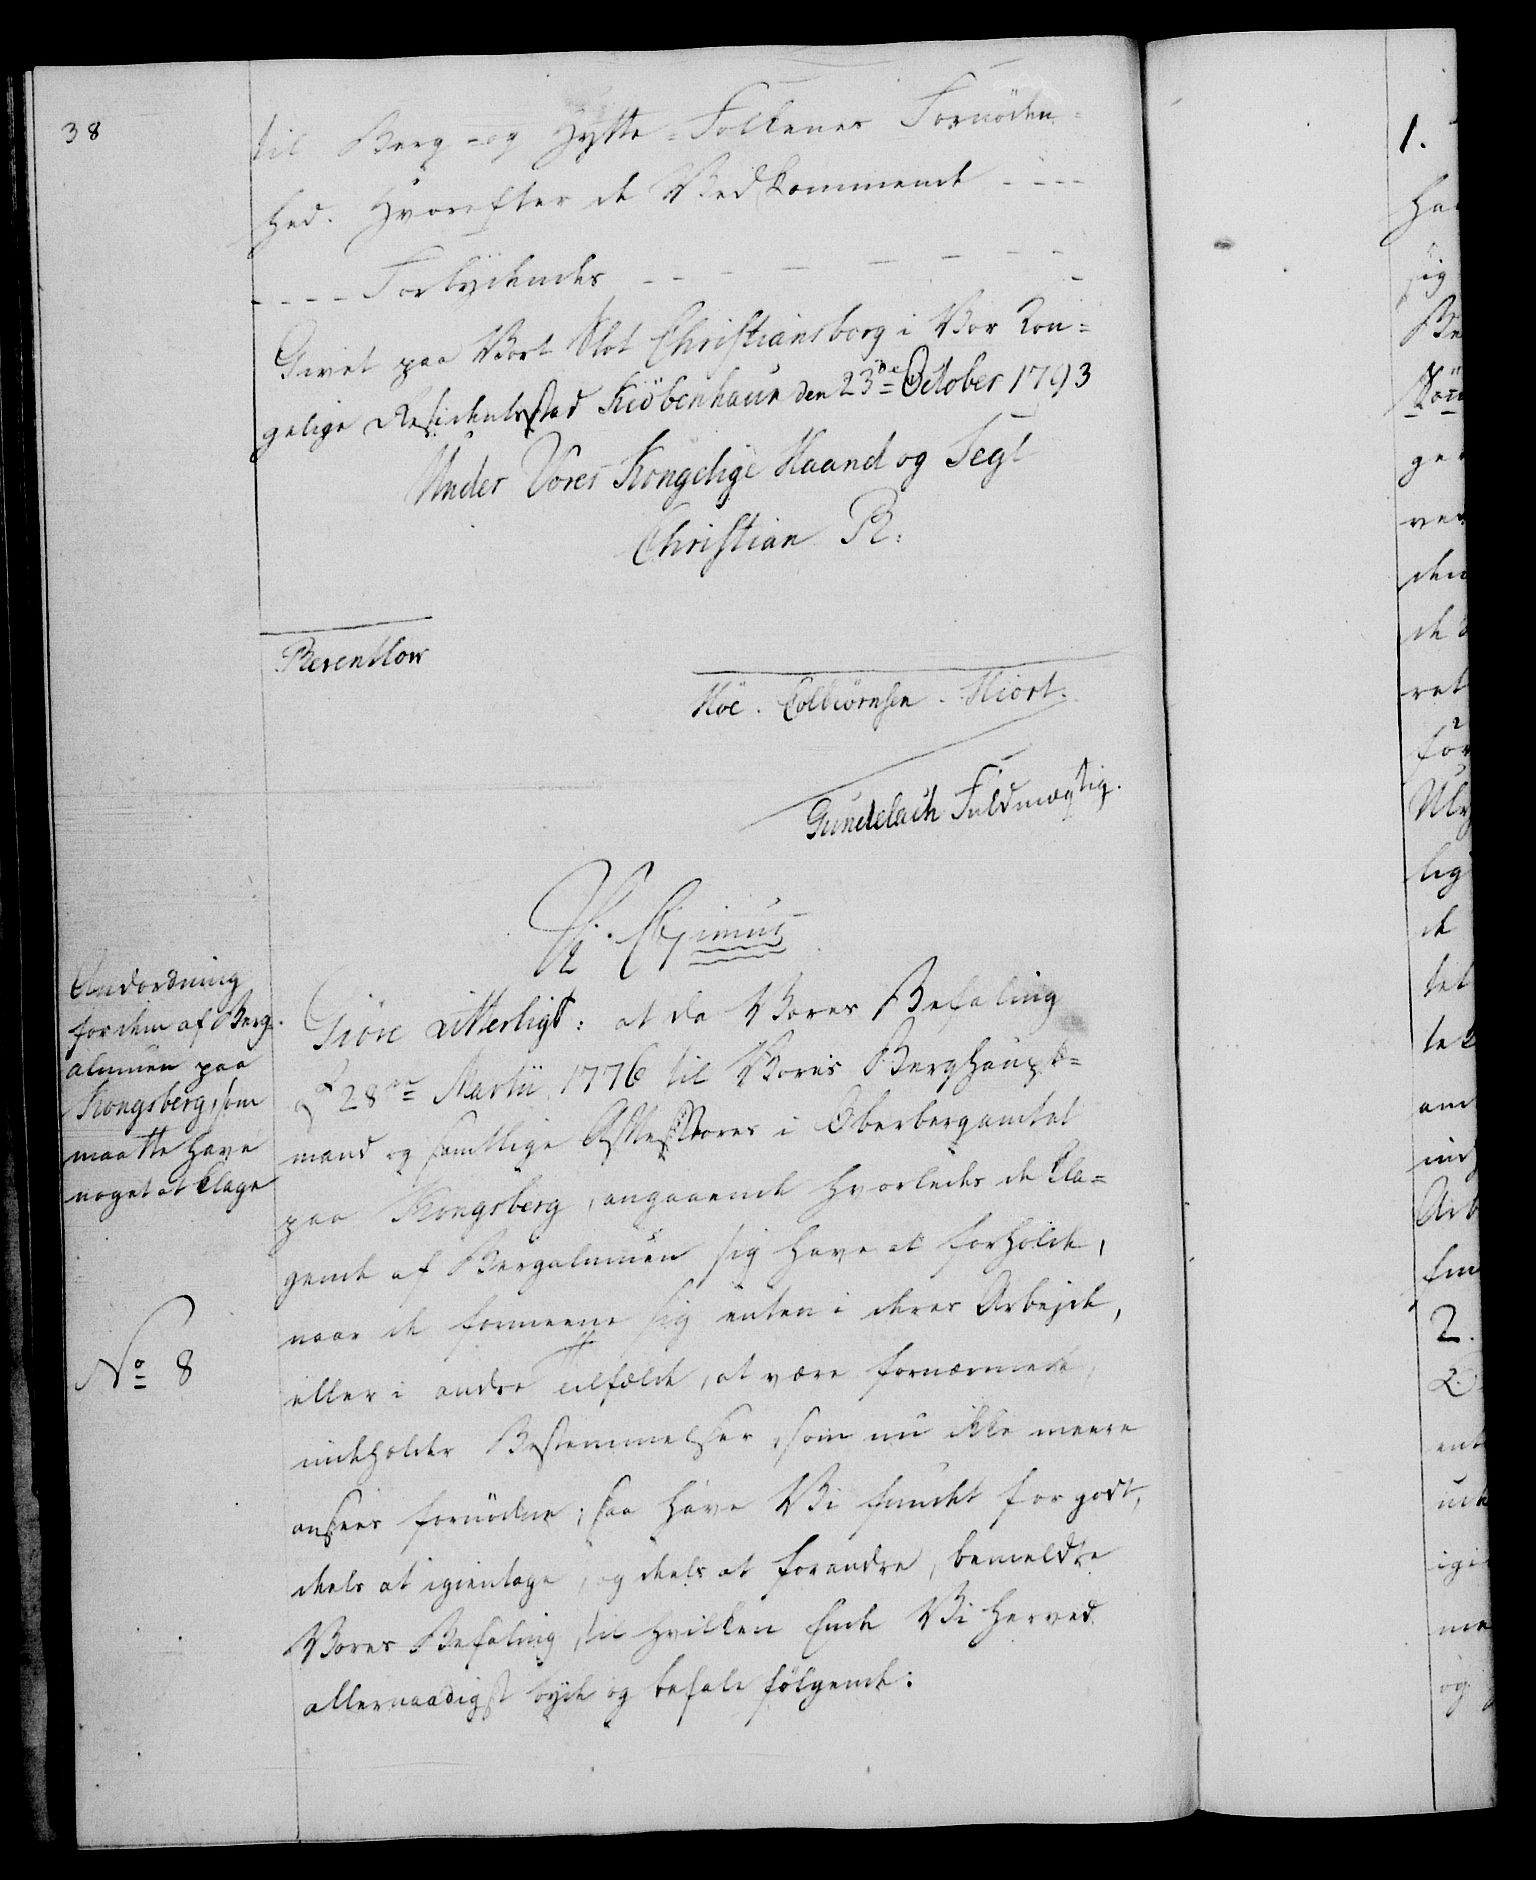 38
til Berg- og Hytte-Folkenes Fornöden-
hed. Hvorefter de Vedkommende ----
---- Forbydendes - - - - - - -
Givet paa Vort Slot Christiansborg i Vor Kon-
gelige Residentsstad Kiöbenhaun den 23de October 1793
Under Vores Kongelige Haand og Segl
Christian R:
Reventlow
Höe. Colbiörnsen. Hiort.
Gundelach Fuldmægtig.
Vi C 7 timus
Andordning
for dem af Berg-
almuen paa
Kongsberg, som
maatte have
noget at klage
No 8
Giöre vitterligt: at da Vores Befaling
af 28de Martii 1776 til Vores Berghaupt-
mand og samtlige Assessores i Oberbergamtet
paa Kongsberg, angaaende hvorledes de kla-
gende af Bergalmuen sig have at forholde,
naar de formeene sig enten i deres Arbejde,
eller i andre Tilfælde, at være fornærmede,
indeholder Bestemmelser, som nu ikke meere
ansees fornödne; saa have Vi fundet for godt,
deels at igientage, og deels at forandre, bemeldte
Vores Befaling, til hvilken Ende Vi herved
allernaadigst byde og befale fölgende:
1.
2.